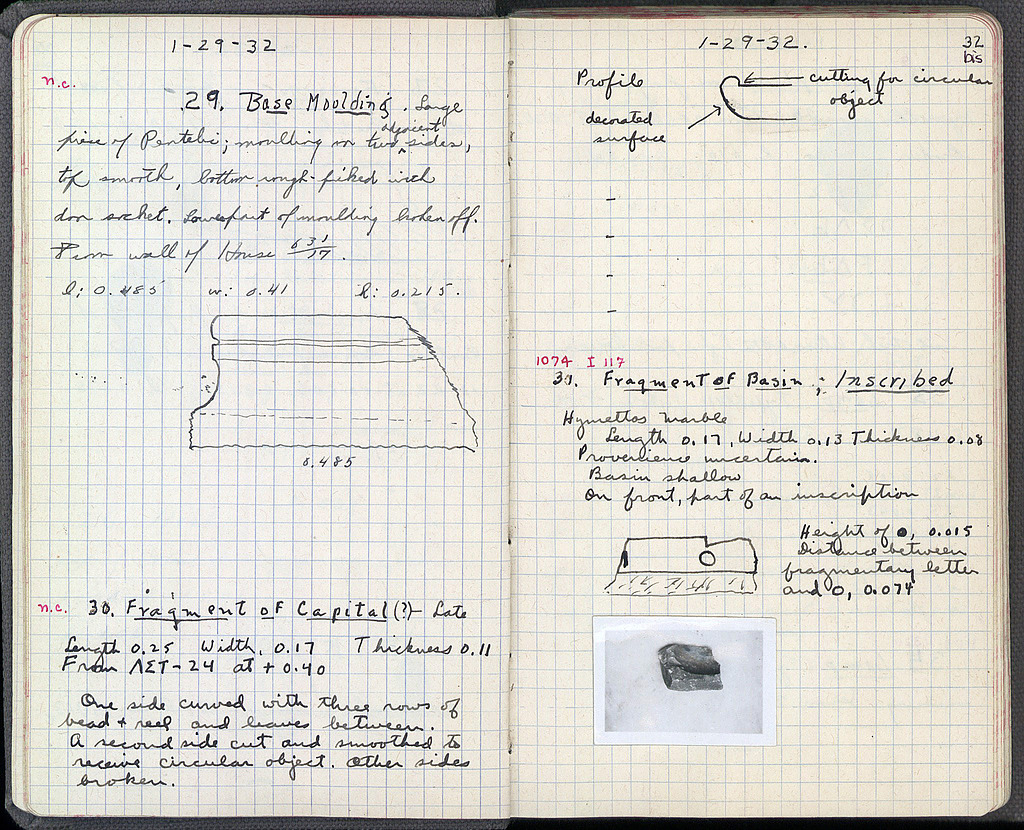 1-29-32
n.c.
29. Base Moulding. Large
piece of Pentelic; moulding on two adjacent sides,
top smooth, bottom rough-picked with
dow socket. Lower part of moulding broken off.
From wall of House 631/17.
l: 0.485 w: 0.41 h: 0.215.
0.485
n.c. 30. Fragment of Capital (?)- Late
Length 0.25 Width, 0.17 Thickness 0.11
From ΛΣΤ-24 at + 0.40
One side curved with three rows of
bead + reel and leaves between.
A second side cut and smoothed to
receive circular object. Other sides
broken.
1-29-32.
32
bis
Profile
cutting for circular
object
decorated
surface
1074 I 117
31. Fragment of Basin; Inscribed
Hymettos marble
Length 0.17, Width 0.13 Thickness 0.08
Provenience uncertain.
Basin shallow
On front, part of an inscription
Height of O, 0.015
Distance between
fragmentary letter
and O, 0.074